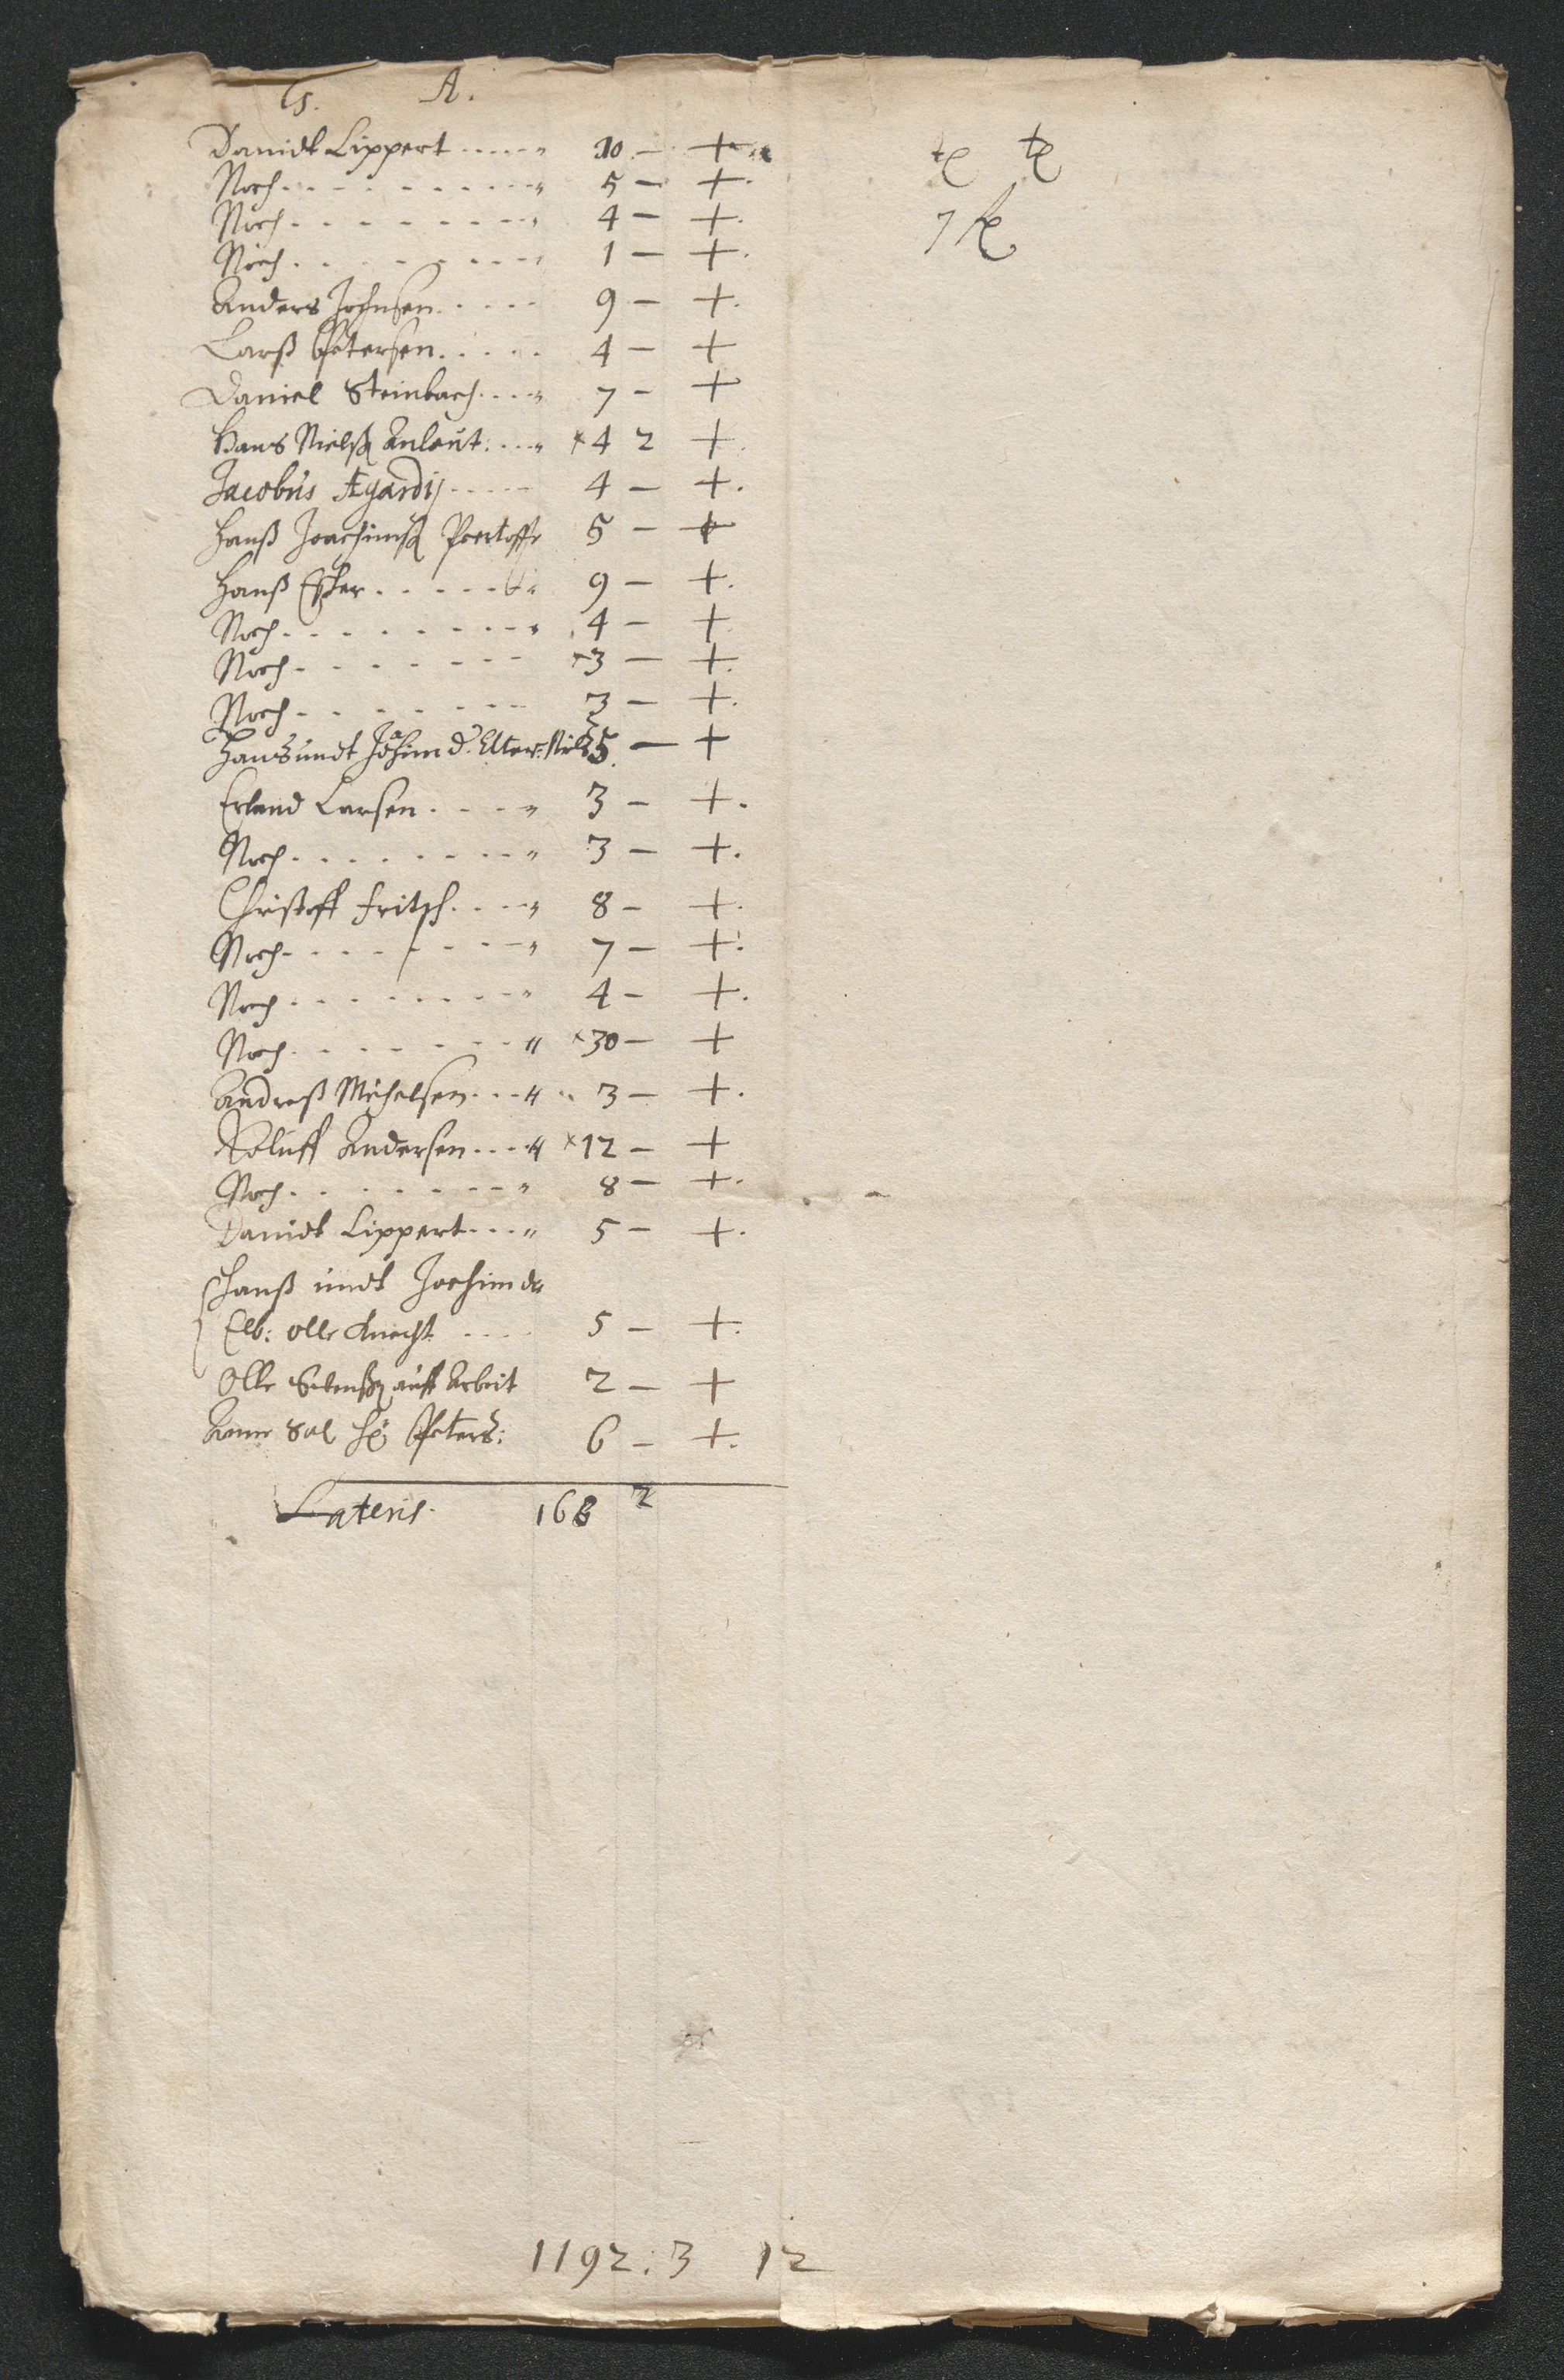 A.
Daniel Lippert 10 — +
Noch 5 — +
Noch 4 — +
Noch 1 — +
Anders Johnsen 9 — +
Larß Petersen 4 — +
Daniel Steinbach 7 — +
Hans Nielß 4 2 +
Jacobus Agardij 4 — +
Hanß Joachimß 5 — +
Hanß 9 — +
Noch 4 — +
Noch 3 — +
Noch 3 — +
Hans undt Jochim d. Elter 5 — +
Erland Larsen 3 — +
Noch 3 — +
Christoff Fritzsch 8 — +
Noch 7 — +
Noch 4 — +
Noch 30 — +
Andreß Michelsen 3 — +
Roluff Andersen 12 — +
Noch 8 — +
Daniel Lippert 5 — +
Hanß undt Jochim de
Elb: Olle Knecht 5 — +
Olle auff Arbeit 2 — +
Sal Peters: 6 — +
Lateris 168 2
1192. 3 12